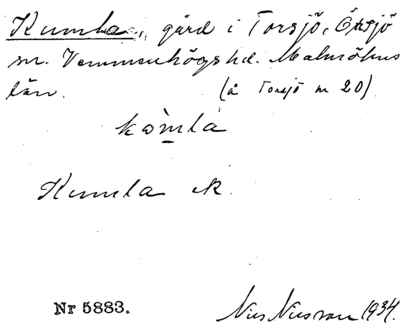 Kumla, gård i Torsjö, Örsjö
sn. Vemmenhögs hd. Malmöhus
län. (å Torsjö nr 20)
komla
Kumla ek.
Nr 5883.
Nils Nilsson 1934.